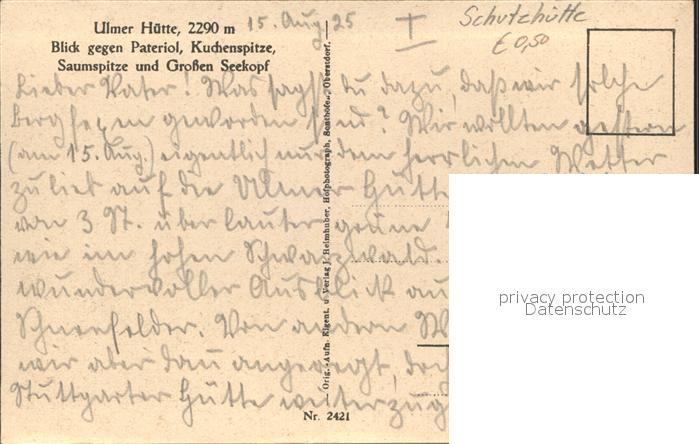 Ulmer Hütte, 2290 m
Blick gegen Pateriol, Kuchenspitze,
Saumspitze und Großen Seekopf
15. Aug 25
Schutzhütte
€ 0,50
Lieber Vater! Was sagst du dazu, daß wir solche
Bergfexen geworden sind? Wir wollten gestern
(am 15. Aug.) eigentlich nur dem herrlichen Wetter
zu lieb auf die Ulmer Hütte
von 3 St. über lauter grüne
wie im hohen Schwarzwald.
wundervoller Ausblick auf
Schneefelder. Von andern
wir aber dazu angeregt, doch
Stuttgarter Hütte weiterzug
Orig.-Aufn. Eigent. u. Verlag J. Heimhuber, Hofphotograph, Sonthofen, Oberstdorf.
Nr. 2421
privacy protection
Datenschutz